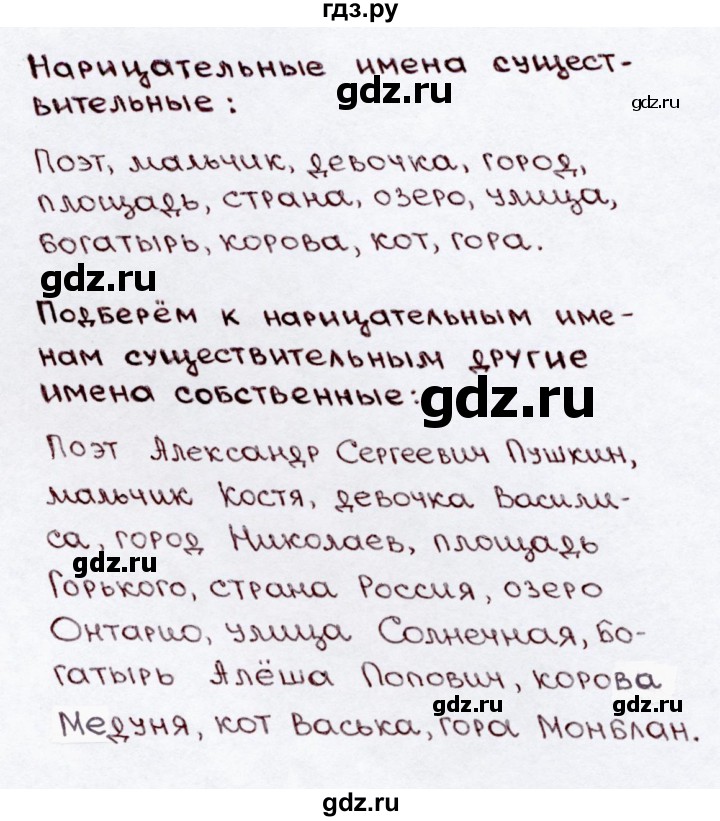 гдз.ру
Нарицательные имена сущест-
вительные:
gdz.ru
gdz.ru
Поэт, мальчик, девочка, город,
площадь, страна, озеро, улица,
богатырь, корова, кот, гора.
gdz.ru
Подберём к нарицательным име-
нам существительным другие
имена собственные:
gdz.ru
Поэт Александр Сергеевич Пушкин,
мальчик Костя, девочка Васили-
са, город Николаев, площадь
gdz.ru
Горького, страна Россия, озеро
Онтарио, улица Солнечная, бо-
гатырь Алёша Попович, корова
gdz.ru
Медуня, кот Васька, гора Монблан.
gdz.ru